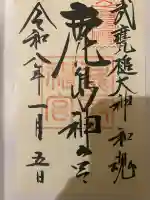 武甕槌大神和魂
鹿島神宮
令和八年一月五日